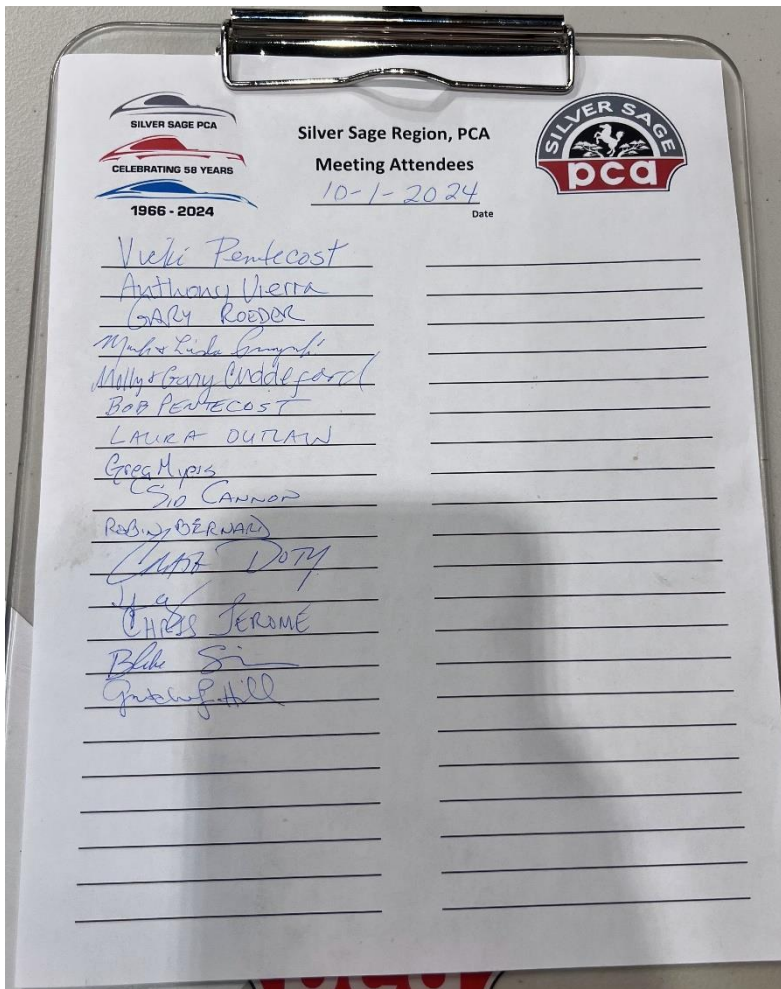 SILVER SAGE PCA
CELEBRATING 58 YEARS
1966 - 2024
Silver Sage Region, PCA
Meeting Attendees
10-1-2024
Date
SILVER SAGE
pca
Vicki Pentecost
Anthony Vierra
GARY ROEDER
Mark & Linda
Molly & Gary Cuddeford
BOB PENTECOST
LAURA OUTLAW
Greg Myers
SID CANNON
ROBIN BERNARD
DOTY
CHRIS JEROME
Blake
Hill